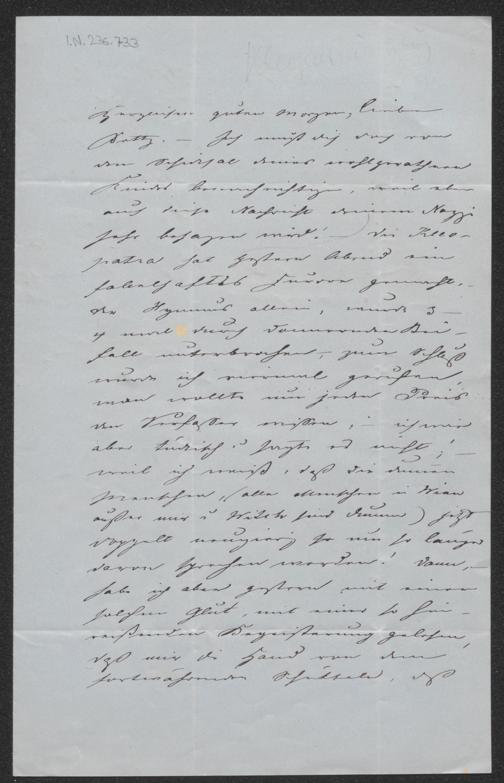 I.N. 236.733
Herzlichen guten Morgen, liebe
Betty. — Ich muß dich doch von
dem Schicksal deines wohlgerathenen
Kindes benachrichtigen, weil aber
auch diese Nachricht deinem
sehr behagen wird! — Die Kleo-
patra hat gestern Abend ein
fabelhaftes Furore gemacht. —
der Hymnus allein, wurde 3 —
4 mal durch donnernden Bei-
fall unterbrochen, — zum Schluß
wurde ich viermal gerufen,
man wollte um jeden Preis
den Verfasser wissen, — ich war
aber tückisch u sagte es nicht! —
weil ich weiß, daß die dummen
Menschen, (alle Menschen in Wien
außer mir u sind dumm) jetzt
doppelt neugierig so um so länger
davon sprechen werden! Dann, —
habe ich aber gestern mit einer
solchen Glut, mit einer so hin-
reißenden Begeisterung gelesen,
daß mir die Hand von dem
fortwährenden Schütteln, daß